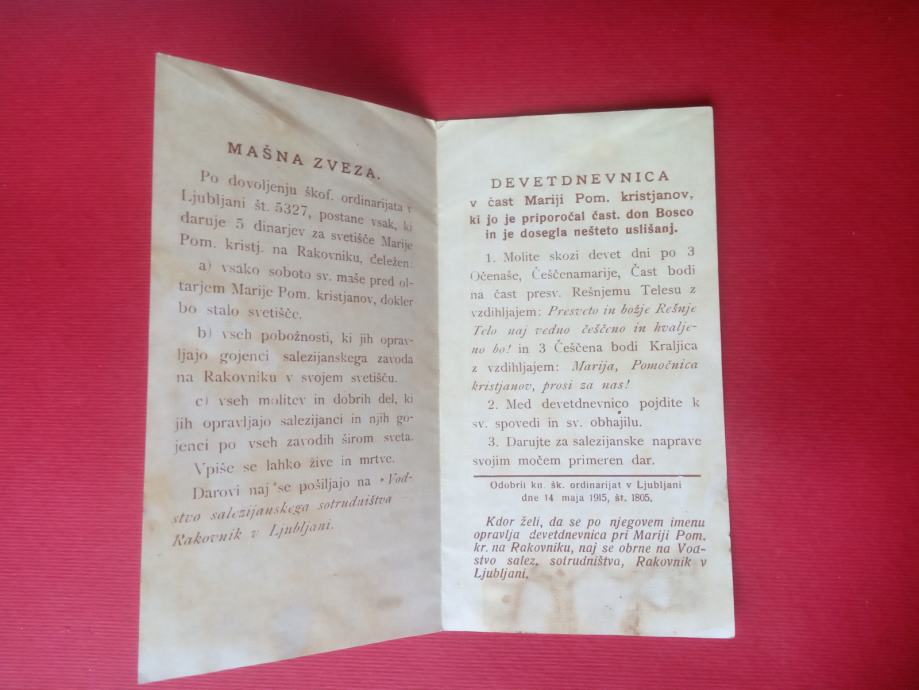 MAŠNA ZVEZA.
Po dovoljenju škof. ordinarijata v
Ljubljani št. 5327, postane vsak, ki
daruje 5 dinarjev za svetišče Marije
Pom. kristj. na Rakovniku, deležen:
a) vsako soboto sv. maše pred ol-
tarjem Marije Pom. kristjanov, dokler
bo stalo svetišče.
b) vseh pobožnosti, ki jih oprav-
ljajo gojenci salezijanskega zavoda
na Rakovniku v svojem svetišču.
c) vseh molitev in dobrih del, ki
jih opravljajo salezijanci in njih go-
jenci po vseh zavodih širom sveta.
Vpiše se lahko žive in mrtve.
Darovi naj se pošiljajo na »Vod-
stvo salezijanskega sotrudništva
Rakovnik v Ljubljani.
DEVETDNEVNICA
v čast Mariji Pom. kristjanov,
ki jo je priporočal čast. don Bosco
in je dosegla nešteto uslišanj.
1. Molite skozi devet dni po 3
Očenaše, Češčenamarije, Čast bodi
na čast presv. Rešnjemu Telesu z
vzdihljajem: Presveto in božje Rešnje
Telo naj vedno češčeno in hvalje-
no bo! in 3 Češčena bodi Kraljica
z vzdihljajem: Marija, Pomočnica
kristjanov, prosi za nas!
2. Med devetdnevnico pojdite k
sv. spovedi in sv. obhajilu.
3. Darujte za salezijanske naprave
svojim močem primeren dar.
Odobril kn. šk. ordinarijat v Ljubljani
dne 14 maja 1915, št. 1805.
Kdor želi, da se po njegovem imenu
opravlja devetdnevnica pri Mariji Pom.
kr. na Rakovniku, naj se obrne na Vod-
stvo salez. sotrudništva, Rakovnik v
Ljubljani.